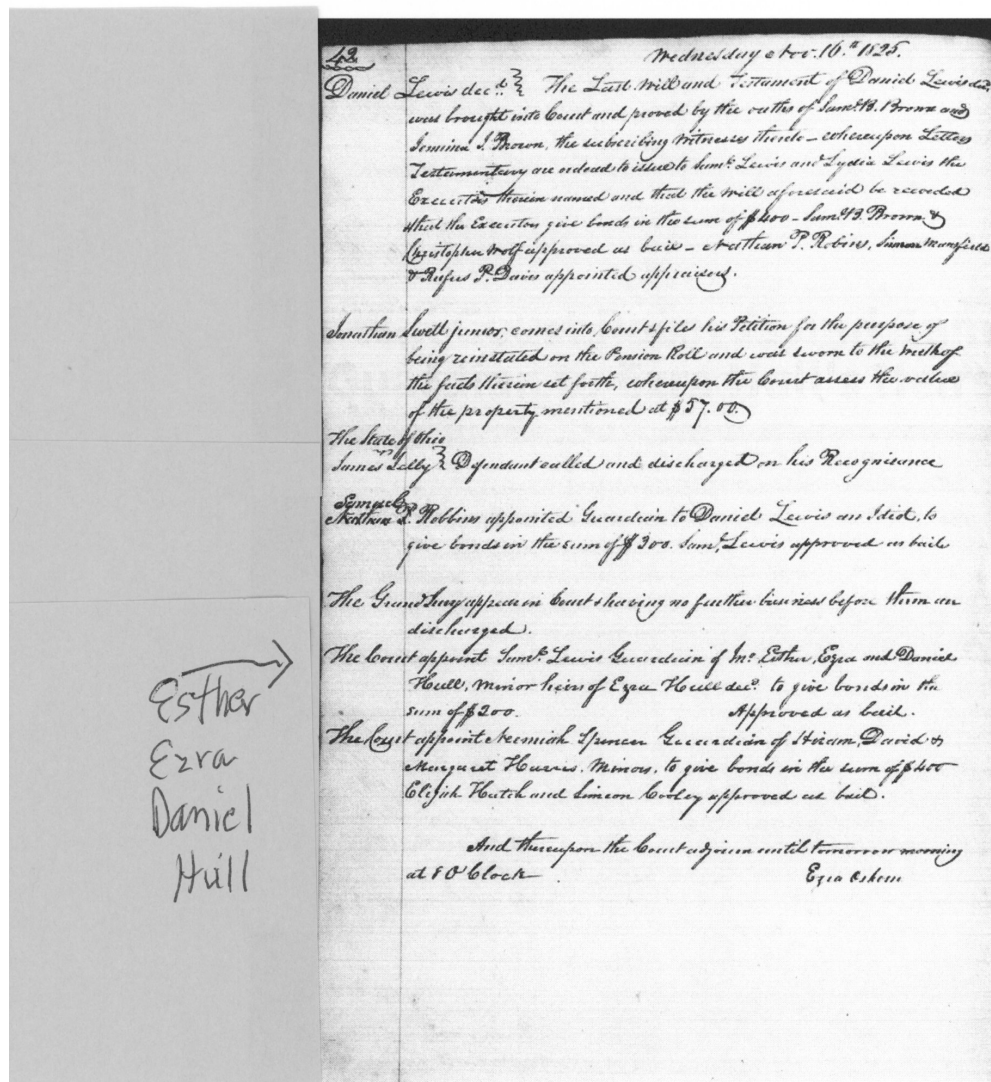 42
Wednesday Nov. 16.th 1825.
Daniel Lewis decd. } The Last Will and Testament of Daniel Lewis decd.
was brought into Court and proved by the oaths of Saml. B. Brown and
Jemima I. Brown, the subscribing Witnesses thereto - whereupon Letters
Testamentary are ordead to issue to Saml. Lewis and Lydia Lewis the
Executors therein named and that the Will aforesaid be recorded
that the Executors give bonds in the sum of $400 - Saml. B. Brown &
Christopher Wolf approved as bail - Nathan P. Robins, Simeon Mansfield
& Rufus P. Davis appointed appraisers.
Jonathan Swett junior, comes into Court & files his Petition for the purpose of
being reinstated on the Pension Roll and was sworn to the truth of
the facts therein set forth, whereupon the Court assess the value
of the property mentioned at $57.00.
The State of Ohio
vs
James Lelly } Defendant called and discharged on his Recognisance
Samuel
Nathan P. Robbins appointed Guardian to Daniel Lewis an Idiot, to
give bonds in the sum of $300. Saml. Lewis approved as bail
The Grand Jury appear in Court & having no further business before them are
discharged.
The Court appoint Saml. Lewis Guardian of Esther, Ezra and Daniel
Hull, minor heirs of Ezra Hull decd. to give bonds in the
sum of $200. Approved as bail.
The Court appoint Neemiah Spencer Guardian of Hiram, David &
Margaret Harris, Minors, to give bonds in the sum of $400
Elijah Hatch and Simeon Cooley approved as bail.
And thereupon the Court adjourn until tomorrow morning
at 8 O'Clock Ezra Osborn
Esther
Ezra
Daniel
Hull